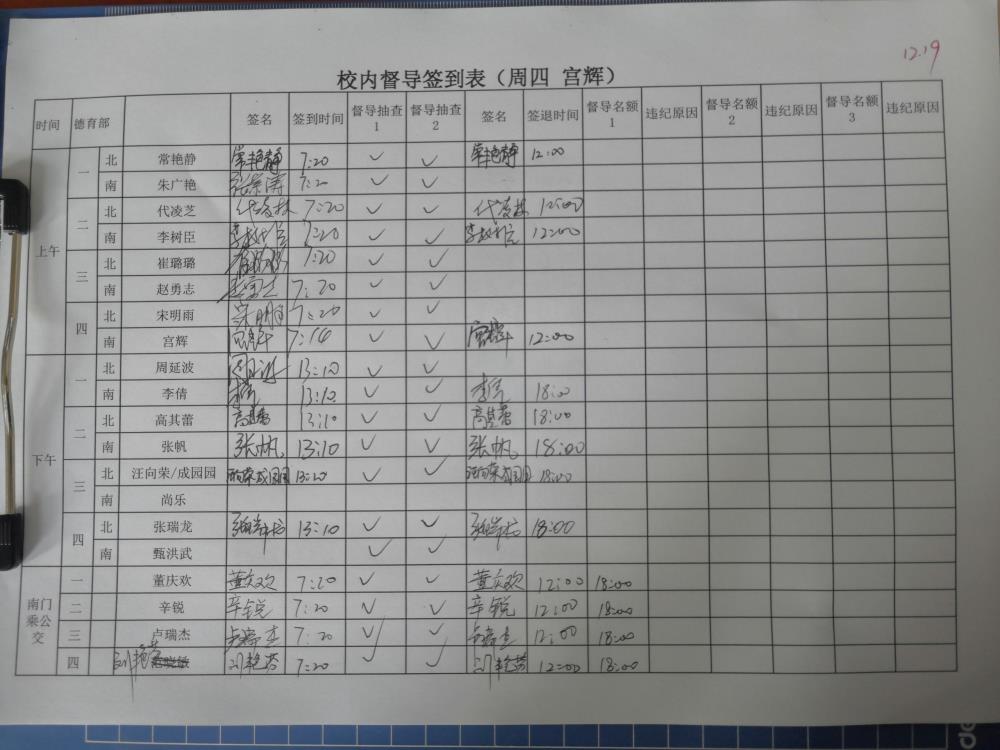 12.19
校内督导签到表（周四 宫辉）
时间 德育部 签名 签到时间 督导抽查1 督导抽查2 签名 签退时间 督导名额1 违纪原因 督导名额2 违纪原因 督导名额3 违纪原因
上午 一 北 常艳静 常艳静 7:20 ✓ ✓ 常艳静 12:00
南 朱广艳 7:20 ✓ ✓
二 北 代凌芝 代凌芝 7:20 ✓ ✓ 代凌芝 12:00
南 李树臣 李树臣 7:20 ✓ ✓ 李树臣 12:00
三 北 崔璐璐 崔璐璐 7:20 ✓ ✓
南 赵勇志 赵勇志 7:20 ✓ ✓
四 北 宋明雨 宋明雨 7:20 ✓ ✓
南 宫辉 宫辉 7:14 ✓ ✓ 宫辉 12:00
下午 一 北 周延波 周延波 13:10 ✓ ✓
南 李倩 李倩 13:10 ✓ ✓ 李倩 18:00
二 北 高其蕾 高其蕾 13:10 ✓ ✓ 高其蕾 18:00
南 张帆 张帆 13:10 ✓ ✓ 张帆 18:00
三 北 汪向荣/成园园 汪向荣成园园 13:20 ✓ ✓ 汪向荣成园园 18:00
南 尚乐
四 北 张瑞龙 张瑞龙 13:10 ✓ ✓ 张瑞龙 18:00
南 甄洪武 ✓ ✓
南门乘公交 一 董庆欢 董庆欢 7:20 ✓ ✓ 董庆欢 12:00 18:00
二 辛锐 辛锐 7:20 ✓ ✓ 辛锐 12:00 18:00
三 卢瑞杰 卢瑞杰 7:20 ✓ ✓ 卢瑞杰 12:00 18:00
四 刘艳芬 刘艳芬 7:20 ✓ ✓ 刘艳芬 12:00 18:00